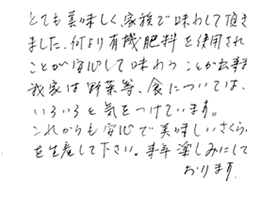 とても美味しく、家族で味わして頂き
ました、何より有機肥料を使用され
ことが安心して味わうことが出来
我家は野菜等、食については、
いろいろと気をつけています。
これからも安心で美味しいさくら
を生産して下さい。楽しみにして
おります